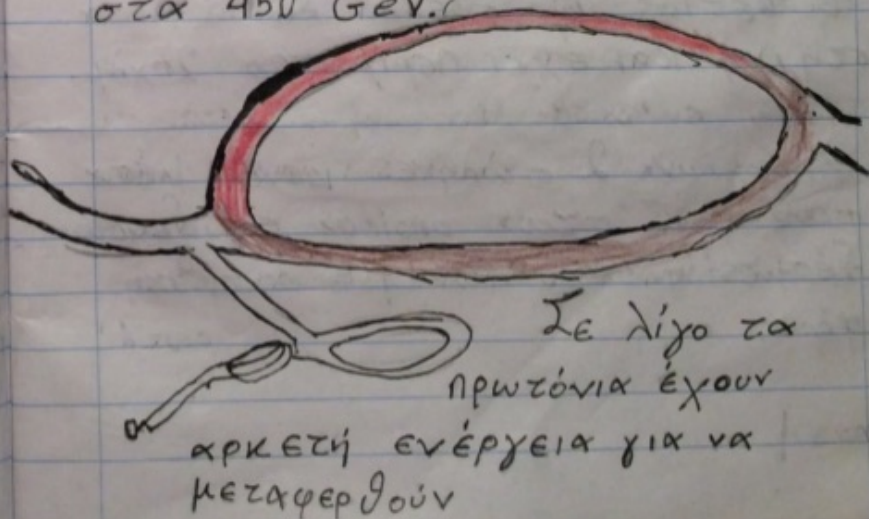 στα 450 GeV.
Σε λίγο τα
πρωτόνια έχουν
αρκετή ενέργεια για να
μεταφερθούν